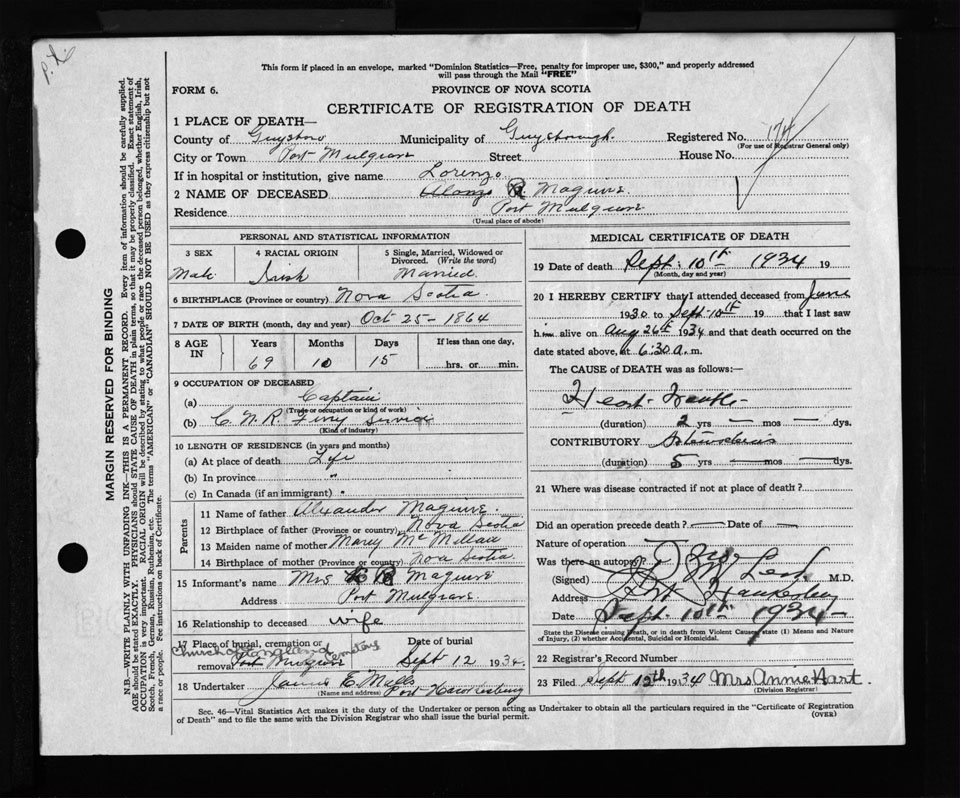 P.L.
This form if placed in an envelope, marked "Dominion Statistics—Free, penalty for improper use, $300," and properly addressed
will pass through the Mail "FREE"
FORM 6.
PROVINCE OF NOVA SCOTIA
CERTIFICATE OF REGISTRATION OF DEATH
1 PLACE OF DEATH—
County of Guysboro Municipality of Guysborough. Registered No. 174
(For use of Registrar General only)
City or Town Port Mulgrave Street House No.
If in hospital or institution, give name Lorenzo
2 NAME OF DECEASED Alonzo R. Maguire.
Residence Port Mulgrave
(Usual place of abode)
PERSONAL AND STATISTICAL INFORMATION
3 SEX 4 RACIAL ORIGIN 5 Single, Married, Widowed or
Divorced. (Write the word)
Male Irish Married.
6 BIRTHPLACE (Province or country) Nova Scotia.
7 DATE OF BIRTH (month, day and year) Oct 25 - 1864
8 AGE IN Years Months Days If less than one day,
69 10 15 hrs. or min.
9 OCCUPATION OF DECEASED
(a) Captain
(Trade or occupation or kind of work)
(b) C.N.R. Ferry Service
(Kind of industry)
10 LENGTH OF RESIDENCE (in years and months)
(a) At place of death Life
(b) In province "
(c) In Canada (if an immigrant) "
Parents
11 Name of father Alxander Maguire.
12 Birthplace of father (Province or country) Nova Scotia
13 Maiden name of mother Mary McMillan
14 Birthplace of mother (Province or country) Nova Scotia.
15 Informant's name Mrs R Maguire
Address Port Mulgrave.
16 Relationship to deceased wife
17 Place of burial, cremation or Date of burial
Church of England Cemetery
removal Port Mulgrave Sept 12 1934.
18 Undertaker James E. Mills Port Hawkesbury
(Name and address)
MEDICAL CERTIFICATE OF DEATH
19 Date of death Sept. 10th 1934 19
(Month, day and year)
20 I HEREBY CERTIFY that I attended deceased from June
1930 to Sept. 10th 19 that I last saw
him alive on Aug 26th 1934 and that death occurred on
date stated above, at 6:30 a. m.
The CAUSE of DEATH was as follows:—
Heart Trouble
(duration) 2 yrs — mos — dys.
CONTRIBUTORY
(duration) 5 yrs — mos — dys.
21 Where was disease contracted if not at place of death?
Did an operation precede death? — Date of —
Nature of operation
Was there an autopsy?
(Signed) M.D.
Address Port Hawkesbury
Date Sept. 10th 1934
State the Disease causing Death, or in death from Violent Causes, state (1) Means and Nature
of Injury, (2) whether Accidental, Suicidal or Homicidal.
22 Registrar's Record Number
23 Filed Sept 12th 1934 Mrs Annie Hart.
(Division Registrar)
Sec. 46—Vital Statistics Act makes it the duty of the Undertaker or person acting as Undertaker to obtain all the particulars required in the "Certificate of Registration
of Death" and to file the same with the Division Registrar who shall issue the burial permit.
(OVER)
MARGIN RESERVED FOR BINDING
N.B.—WRITE PLAINLY WITH UNFADING INK—THIS IS A PERMANENT RECORD. Every item of information should be carefully supplied.
AGE should be stated EXACTLY. PHYSICIANS should STATE CAUSE OF DEATH in plain terms, so that it may be properly classified. Exact statement of
OCCUPATION is very important. RACIAL ORIGIN will be described by stating to what people or race the deceased person belonged, whether English, Irish,
Scotch, French, German, Russian, Ruthenian, etc. The terms "AMERICAN" or "CANADIAN" SHOULD NOT BE USED as they express citizenship but not
a race or people. See instructions on back of Certificate.